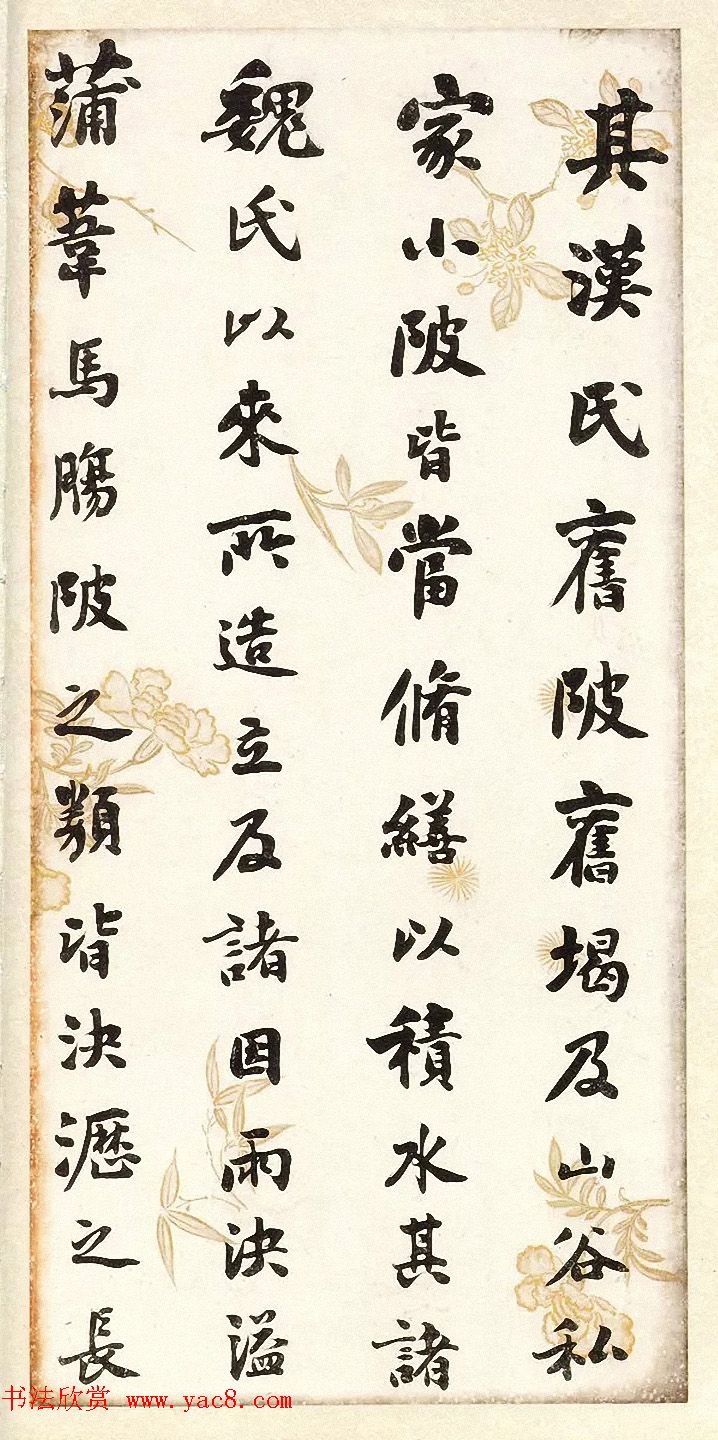 其漢氏舊陂舊堨及山谷私
家小陂皆當脩繕以積水其諸
魏氏以來所造立及諸因雨決溢
蒲葦馬腸陂之類皆決瀝之長
书法欣赏 www.yac8.com